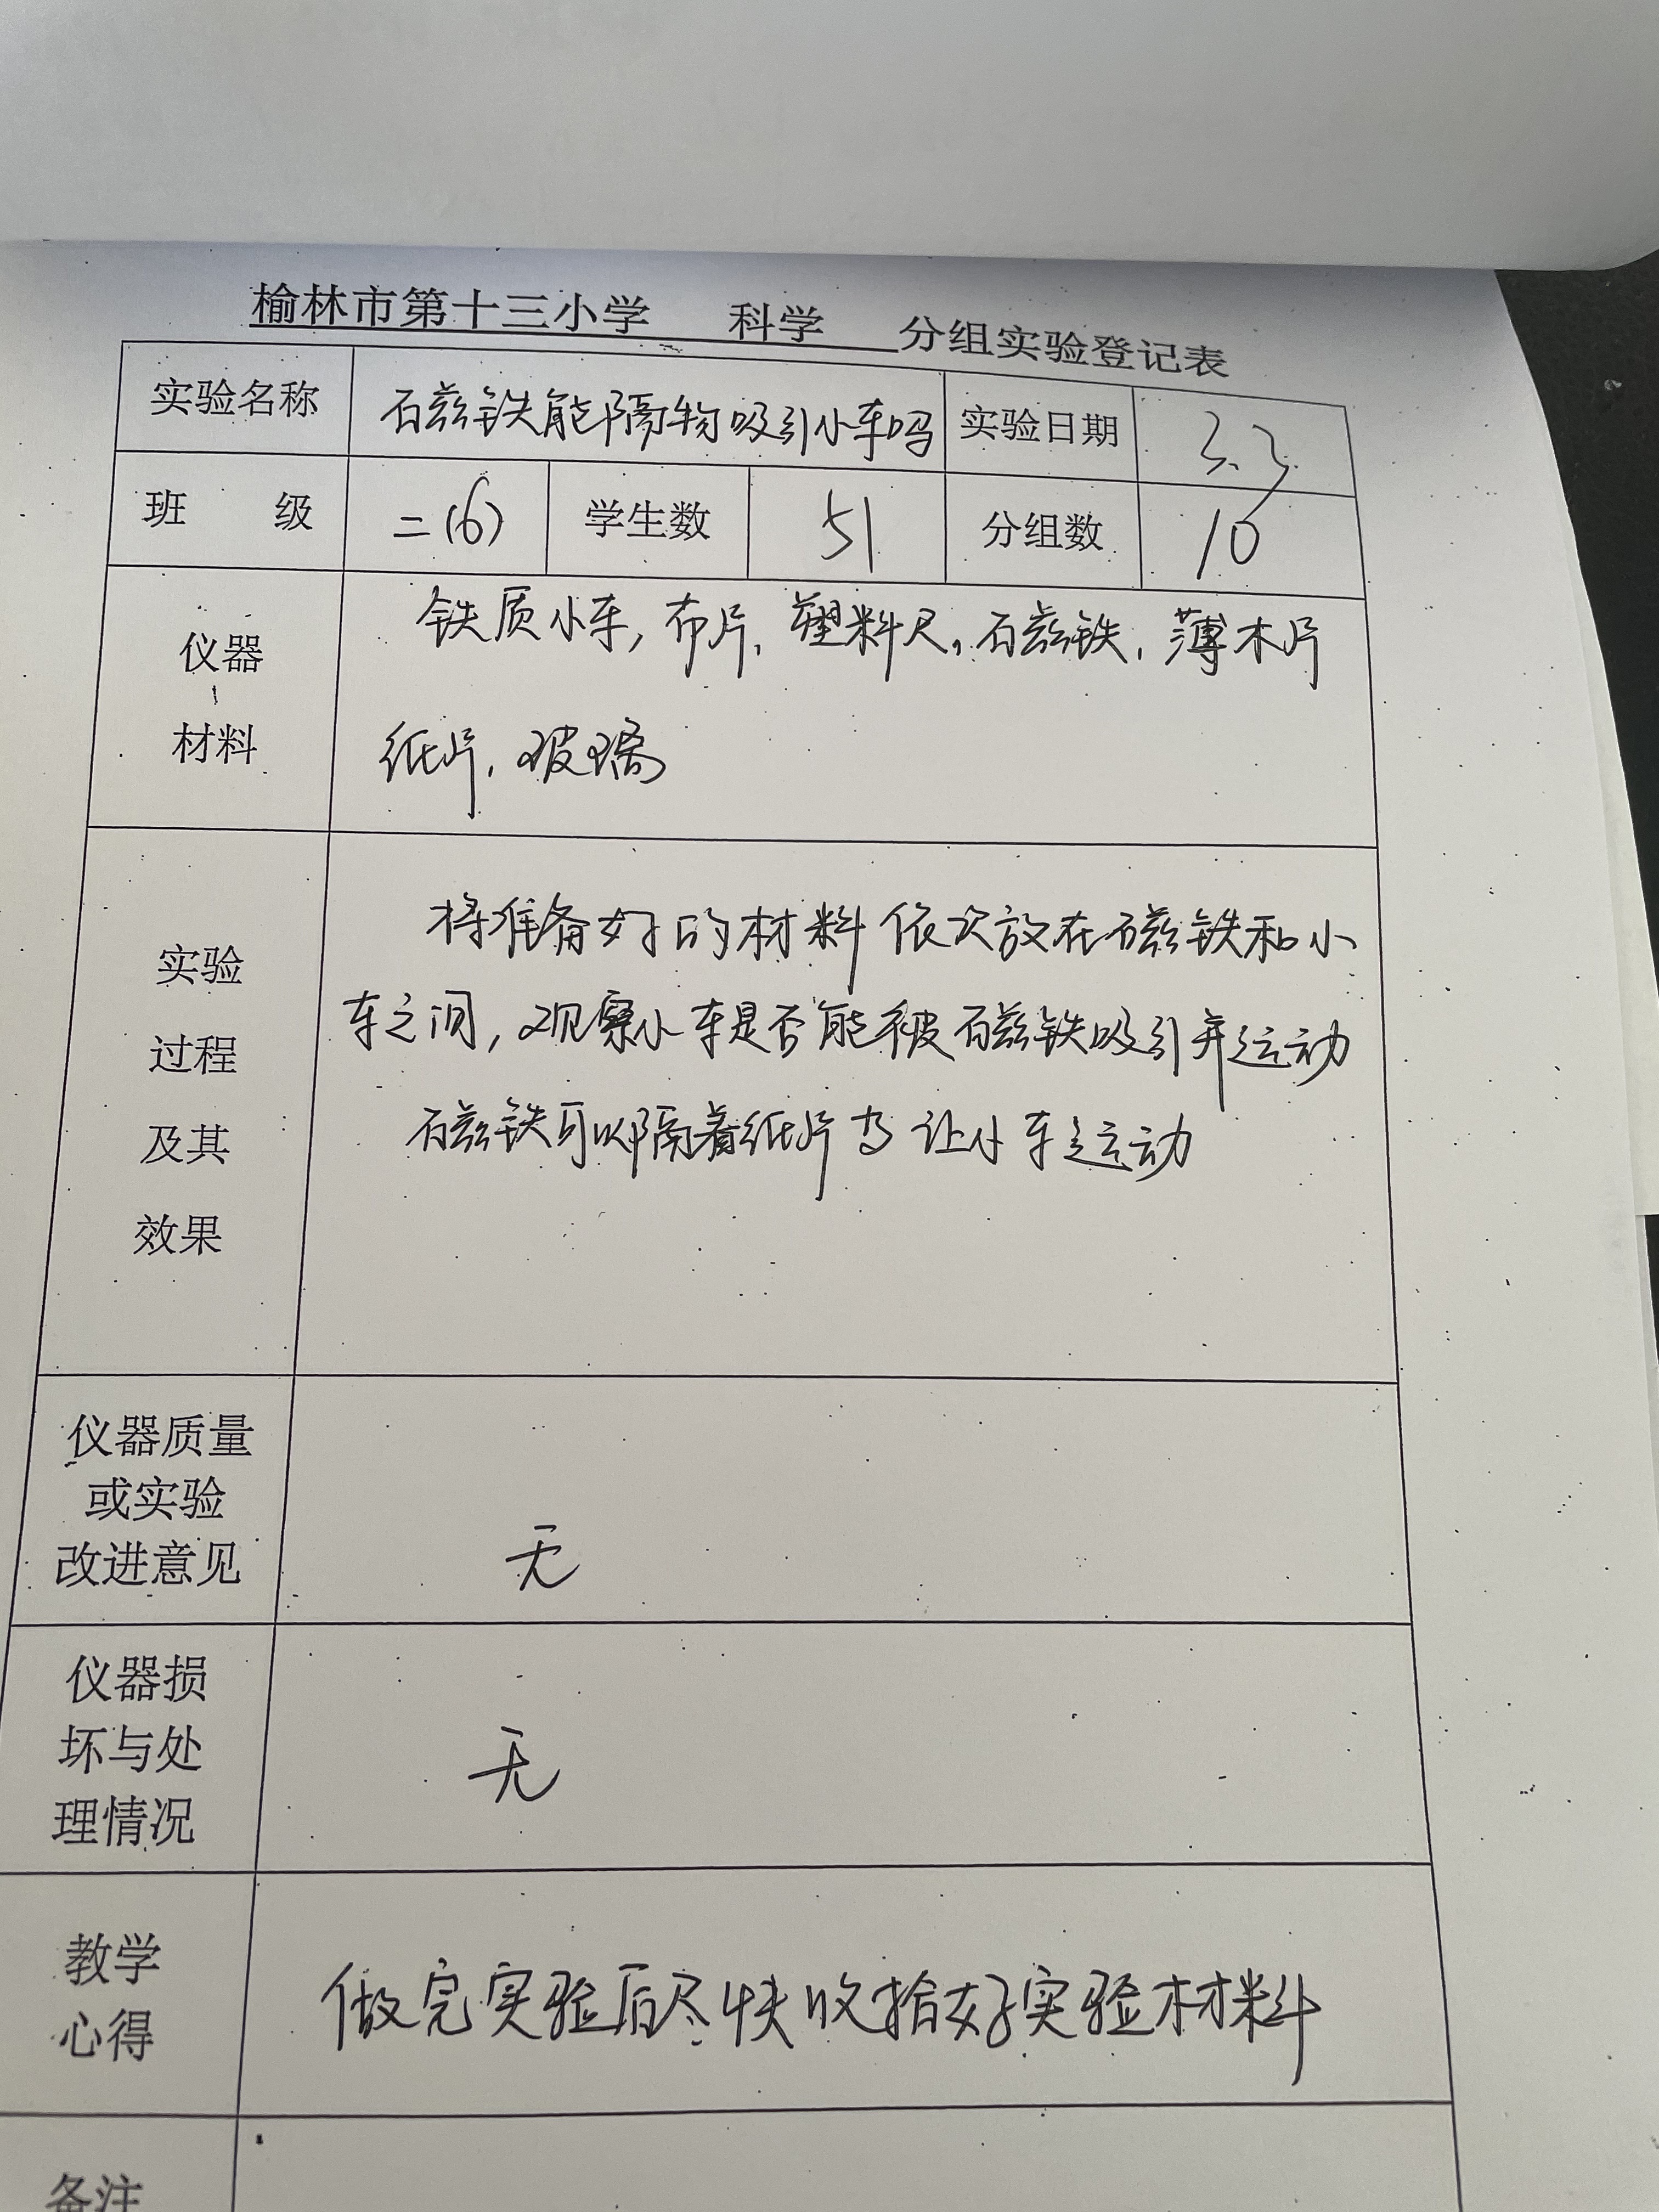 榆林市第十三小学 科学 分组实验登记表
实验名称 石磁铁能隔物吸引小车吗 实验日期 3.3
班 级 二(6) 学生数 51 分组数 10
仪器
材料
铁质小车,布片,塑料尺,石磁铁,薄木片
纸片,玻璃
实验
过程
及其
效果
将准备好的材料依次放在石磁铁和小
车之间,观察小车是否能被石磁铁吸引并运动
石磁铁可以隔着纸片 让小车运动
仪器质量
或实验
改进意见
无
仪器损
坏与处
理情况
无
教学
心得
做完实验后尽快收拾好实验材料
备注